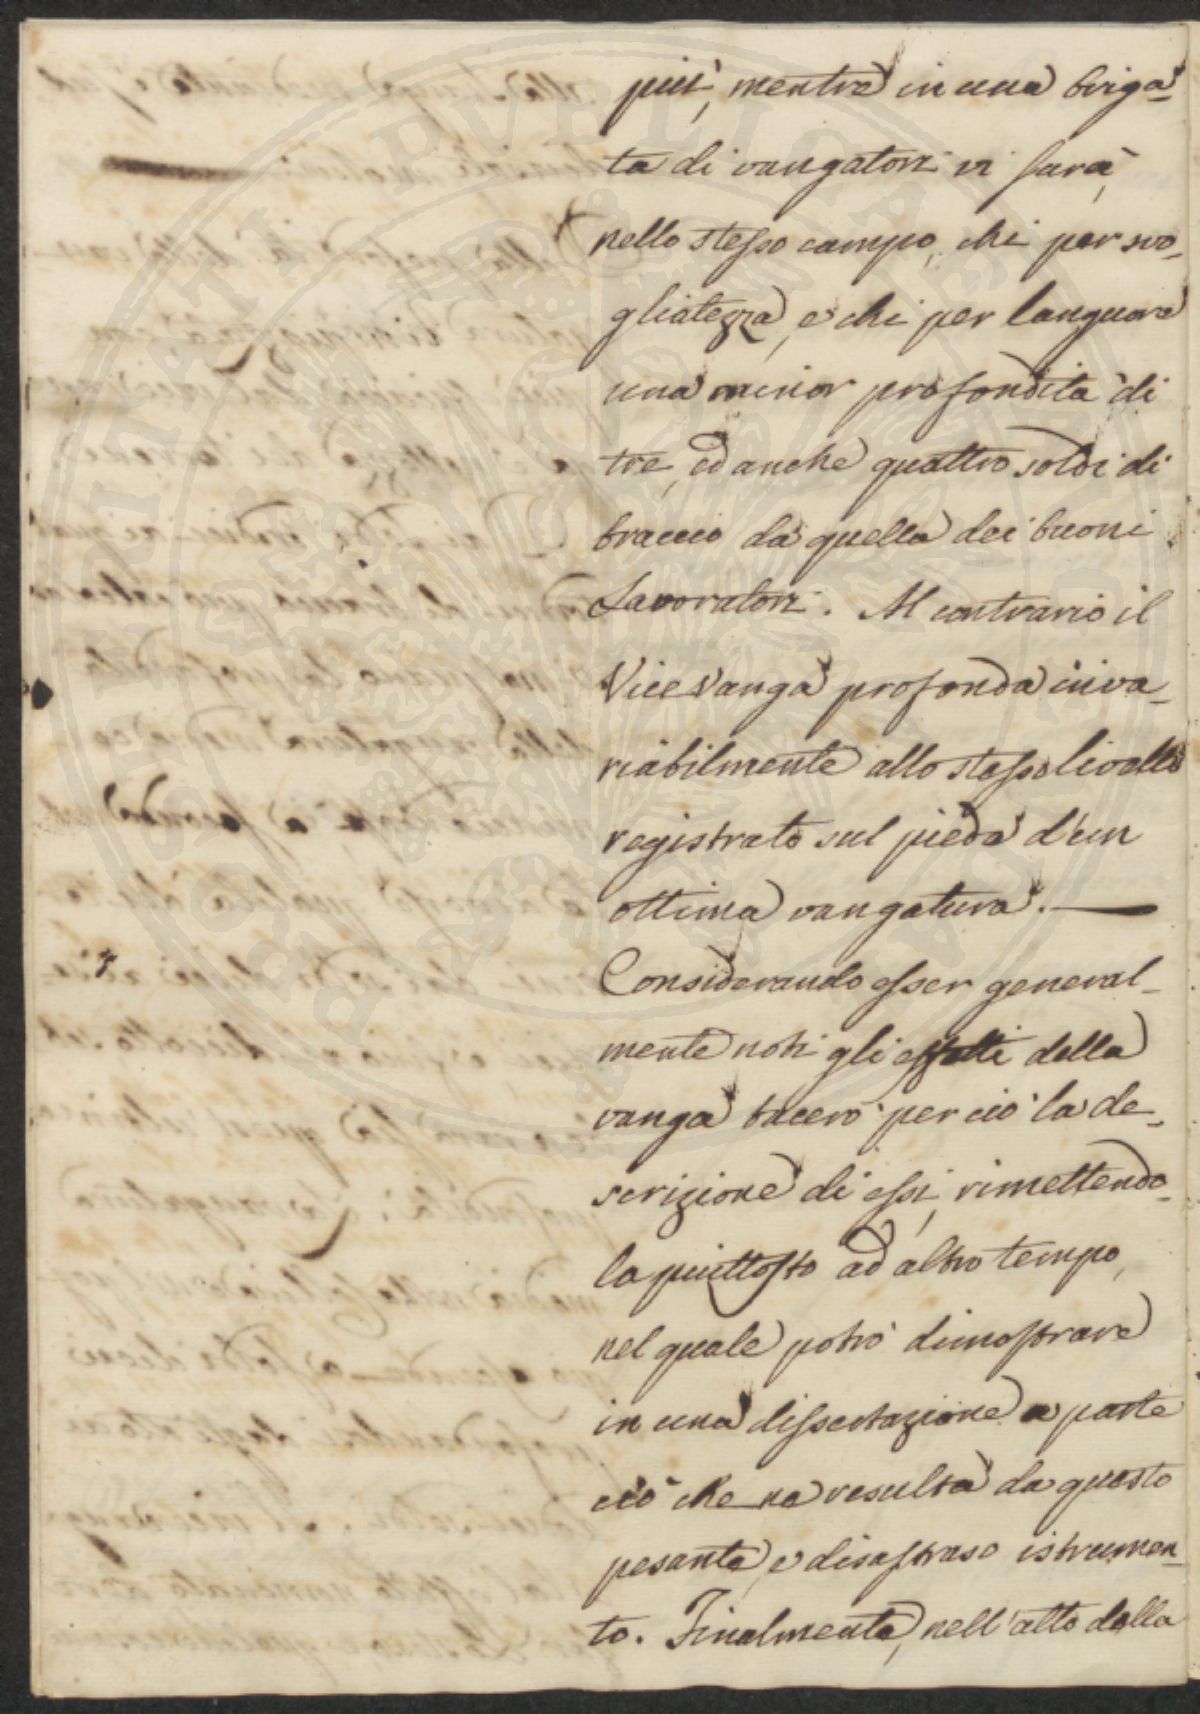 più, mentre in una briga-
ta di vangatori vi sarà,
nello stesso campo, chi per svo-
gliatezza, e chi per languore
una minor profondità di
tre, ed anche quattro soldi di
braccio da quella dei buoni
Lavoratori. Al contrario il
ViceVanga profonda inva-
riabilmente allo stesso livello
registrato sul piede d'un
ottima vangatura. —
Considerando esser general-
mente noti gli effetti della
vanga tacerò perciò la de-
scrizione di essi, rimettendo-
la piuttosto ad altro tempo,
nel quale potrò dimostrare
in una dissertazione a parte
ciò che ne resulta da questo
pesante, e disastroso istrumen-
to. Finalmente, nell'atto della